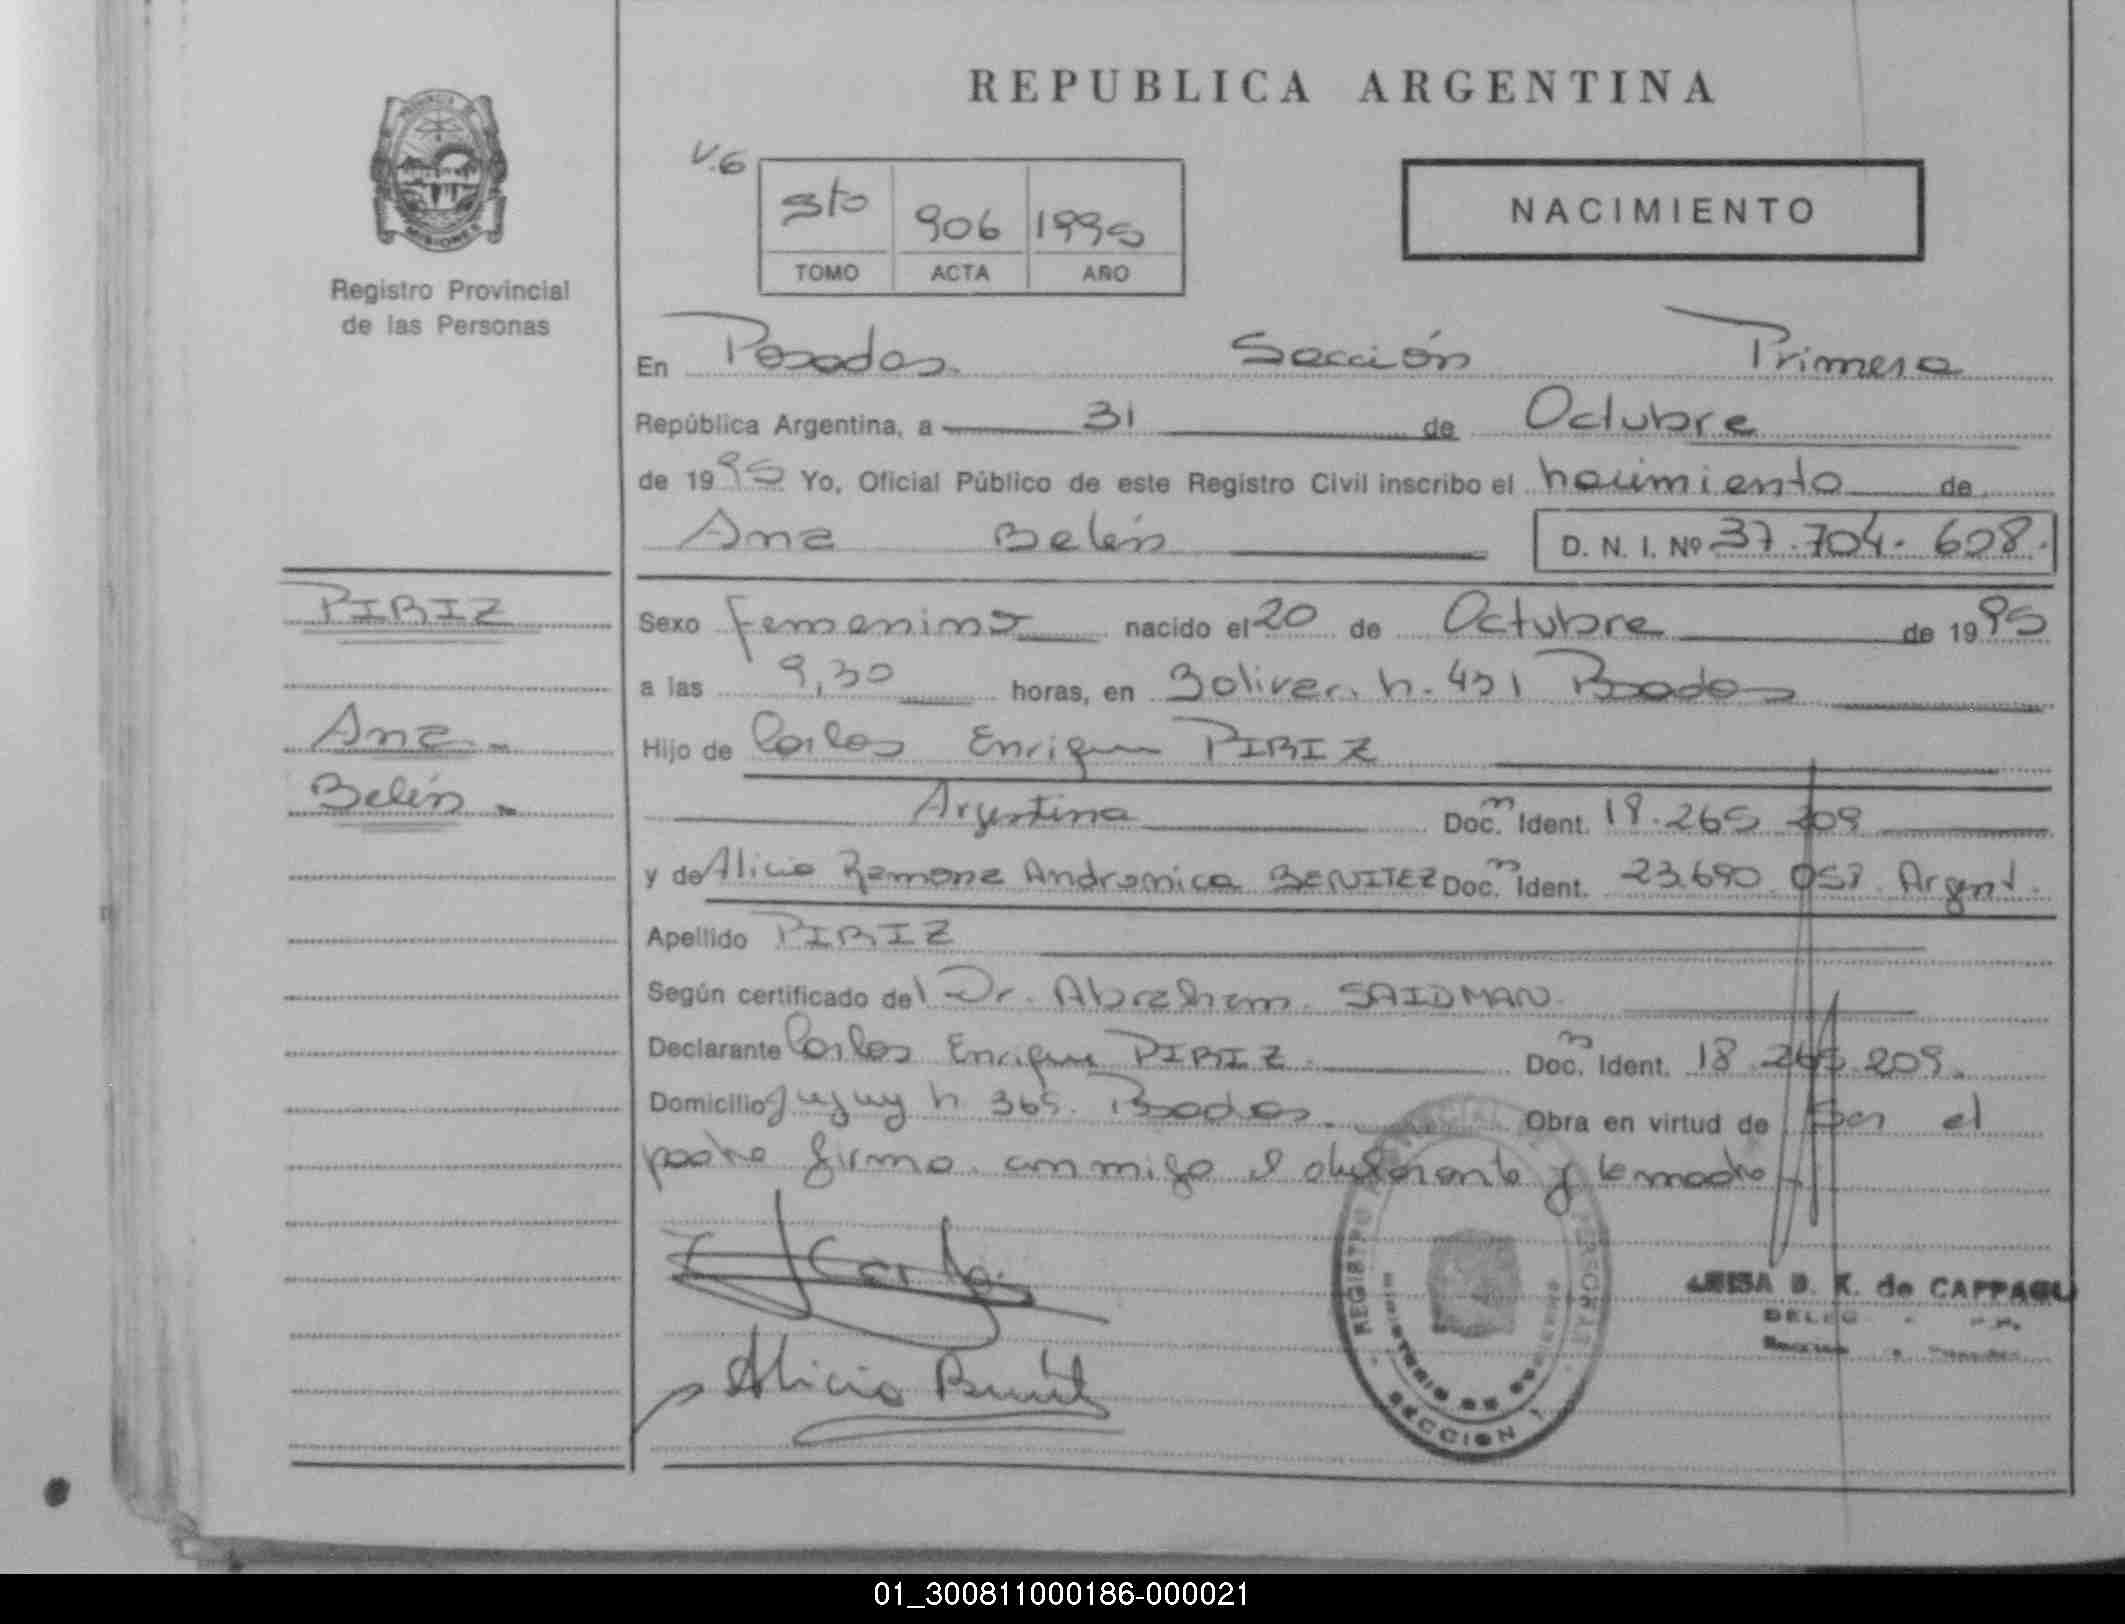 REPUBLICA ARGENTINA
PROVINCIA DE
MISIONES
Registro Provincial
de las Personas
V.6
5to 906 1995
TOMO ACTA AÑO
NACIMIENTO
En Posadas. Sección Primera
República Argentina, a 31 de Octubre
de 1995 Yo, Oficial Público de este Registro Civil inscribo el nacimiento de
Ana Belén D. N. I. Nº 37.704.608.
PIRIZ
Ana.-
Belén.-
Sexo femenino nacido el 20 de Octubre de 1995
a las 9,30 horas, en Bolivar. n. 431 Posadas
Hijo de Carlos Enrique PIRIZ
Argentina Doc. n Ident. 18.265 209
y de Alicia Ramona Andronica BENITEZ Doc. n Ident. 23.690 Argent.
Apellido PIRIZ
Según certificado del Dr. Abraham. SAIDMAN.
Declarante Carlos Enrique PIRIZ. Doc. n Ident. 18.265.209.
Domicilio Jujuy n 365. Posadas. Obra en virtud de Ser el
padre firma conmigo el declarante y la madre
Carlos
Alicia Benitez
REGISTRO PERSONAS
MINISTERIO DE GOBIERNO
SECCION 1
D. K. de
01_300811000186-000021